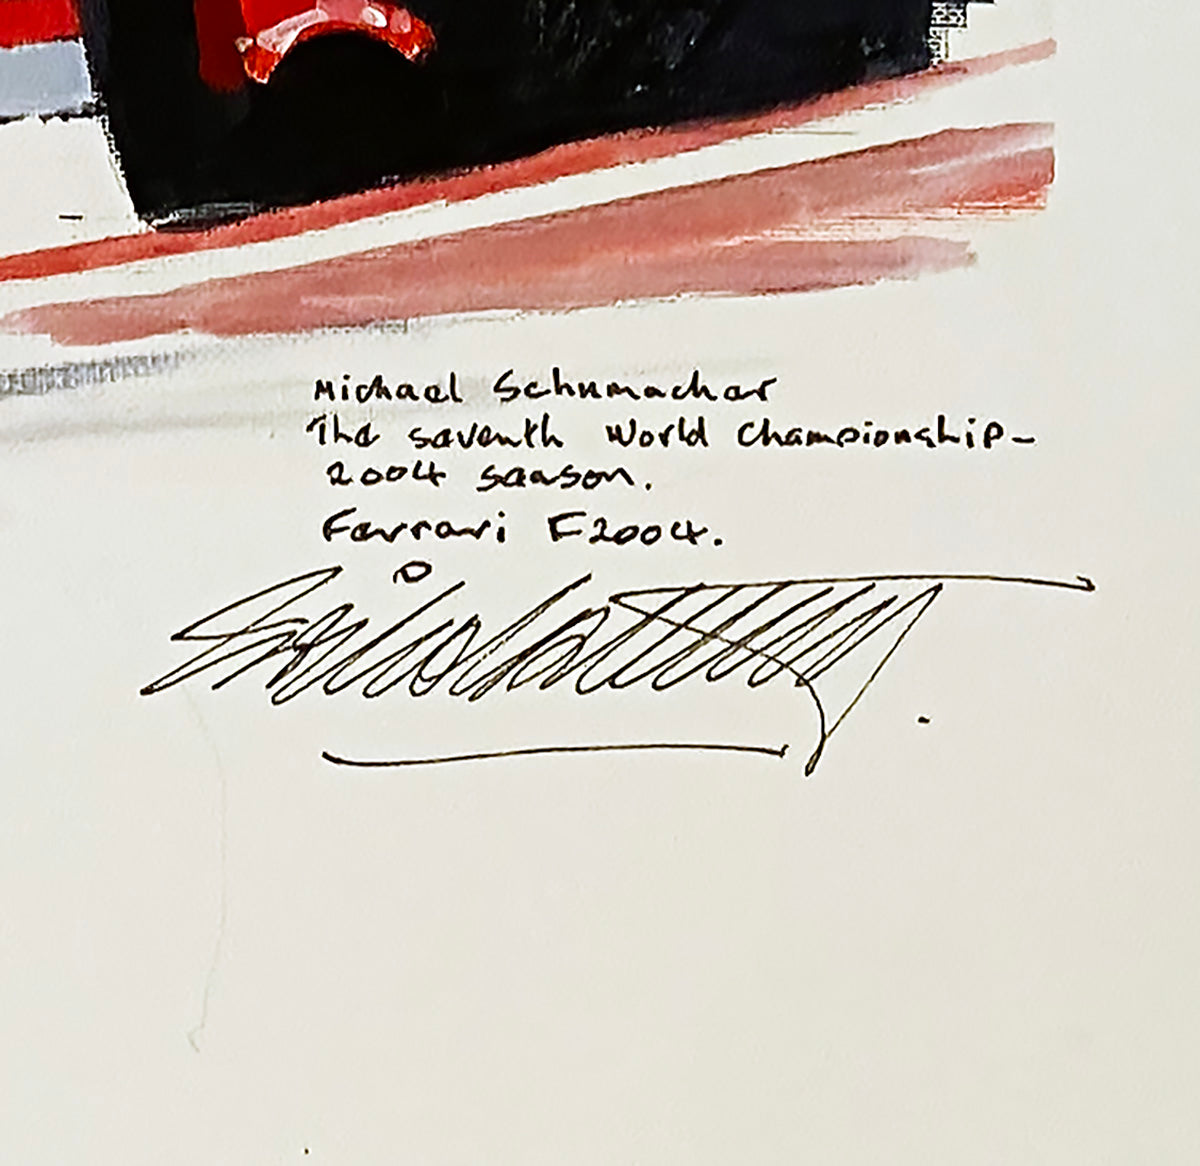 Michael Schumacher
The seventh World Championship-
2004 season.
Ferrari F2004.